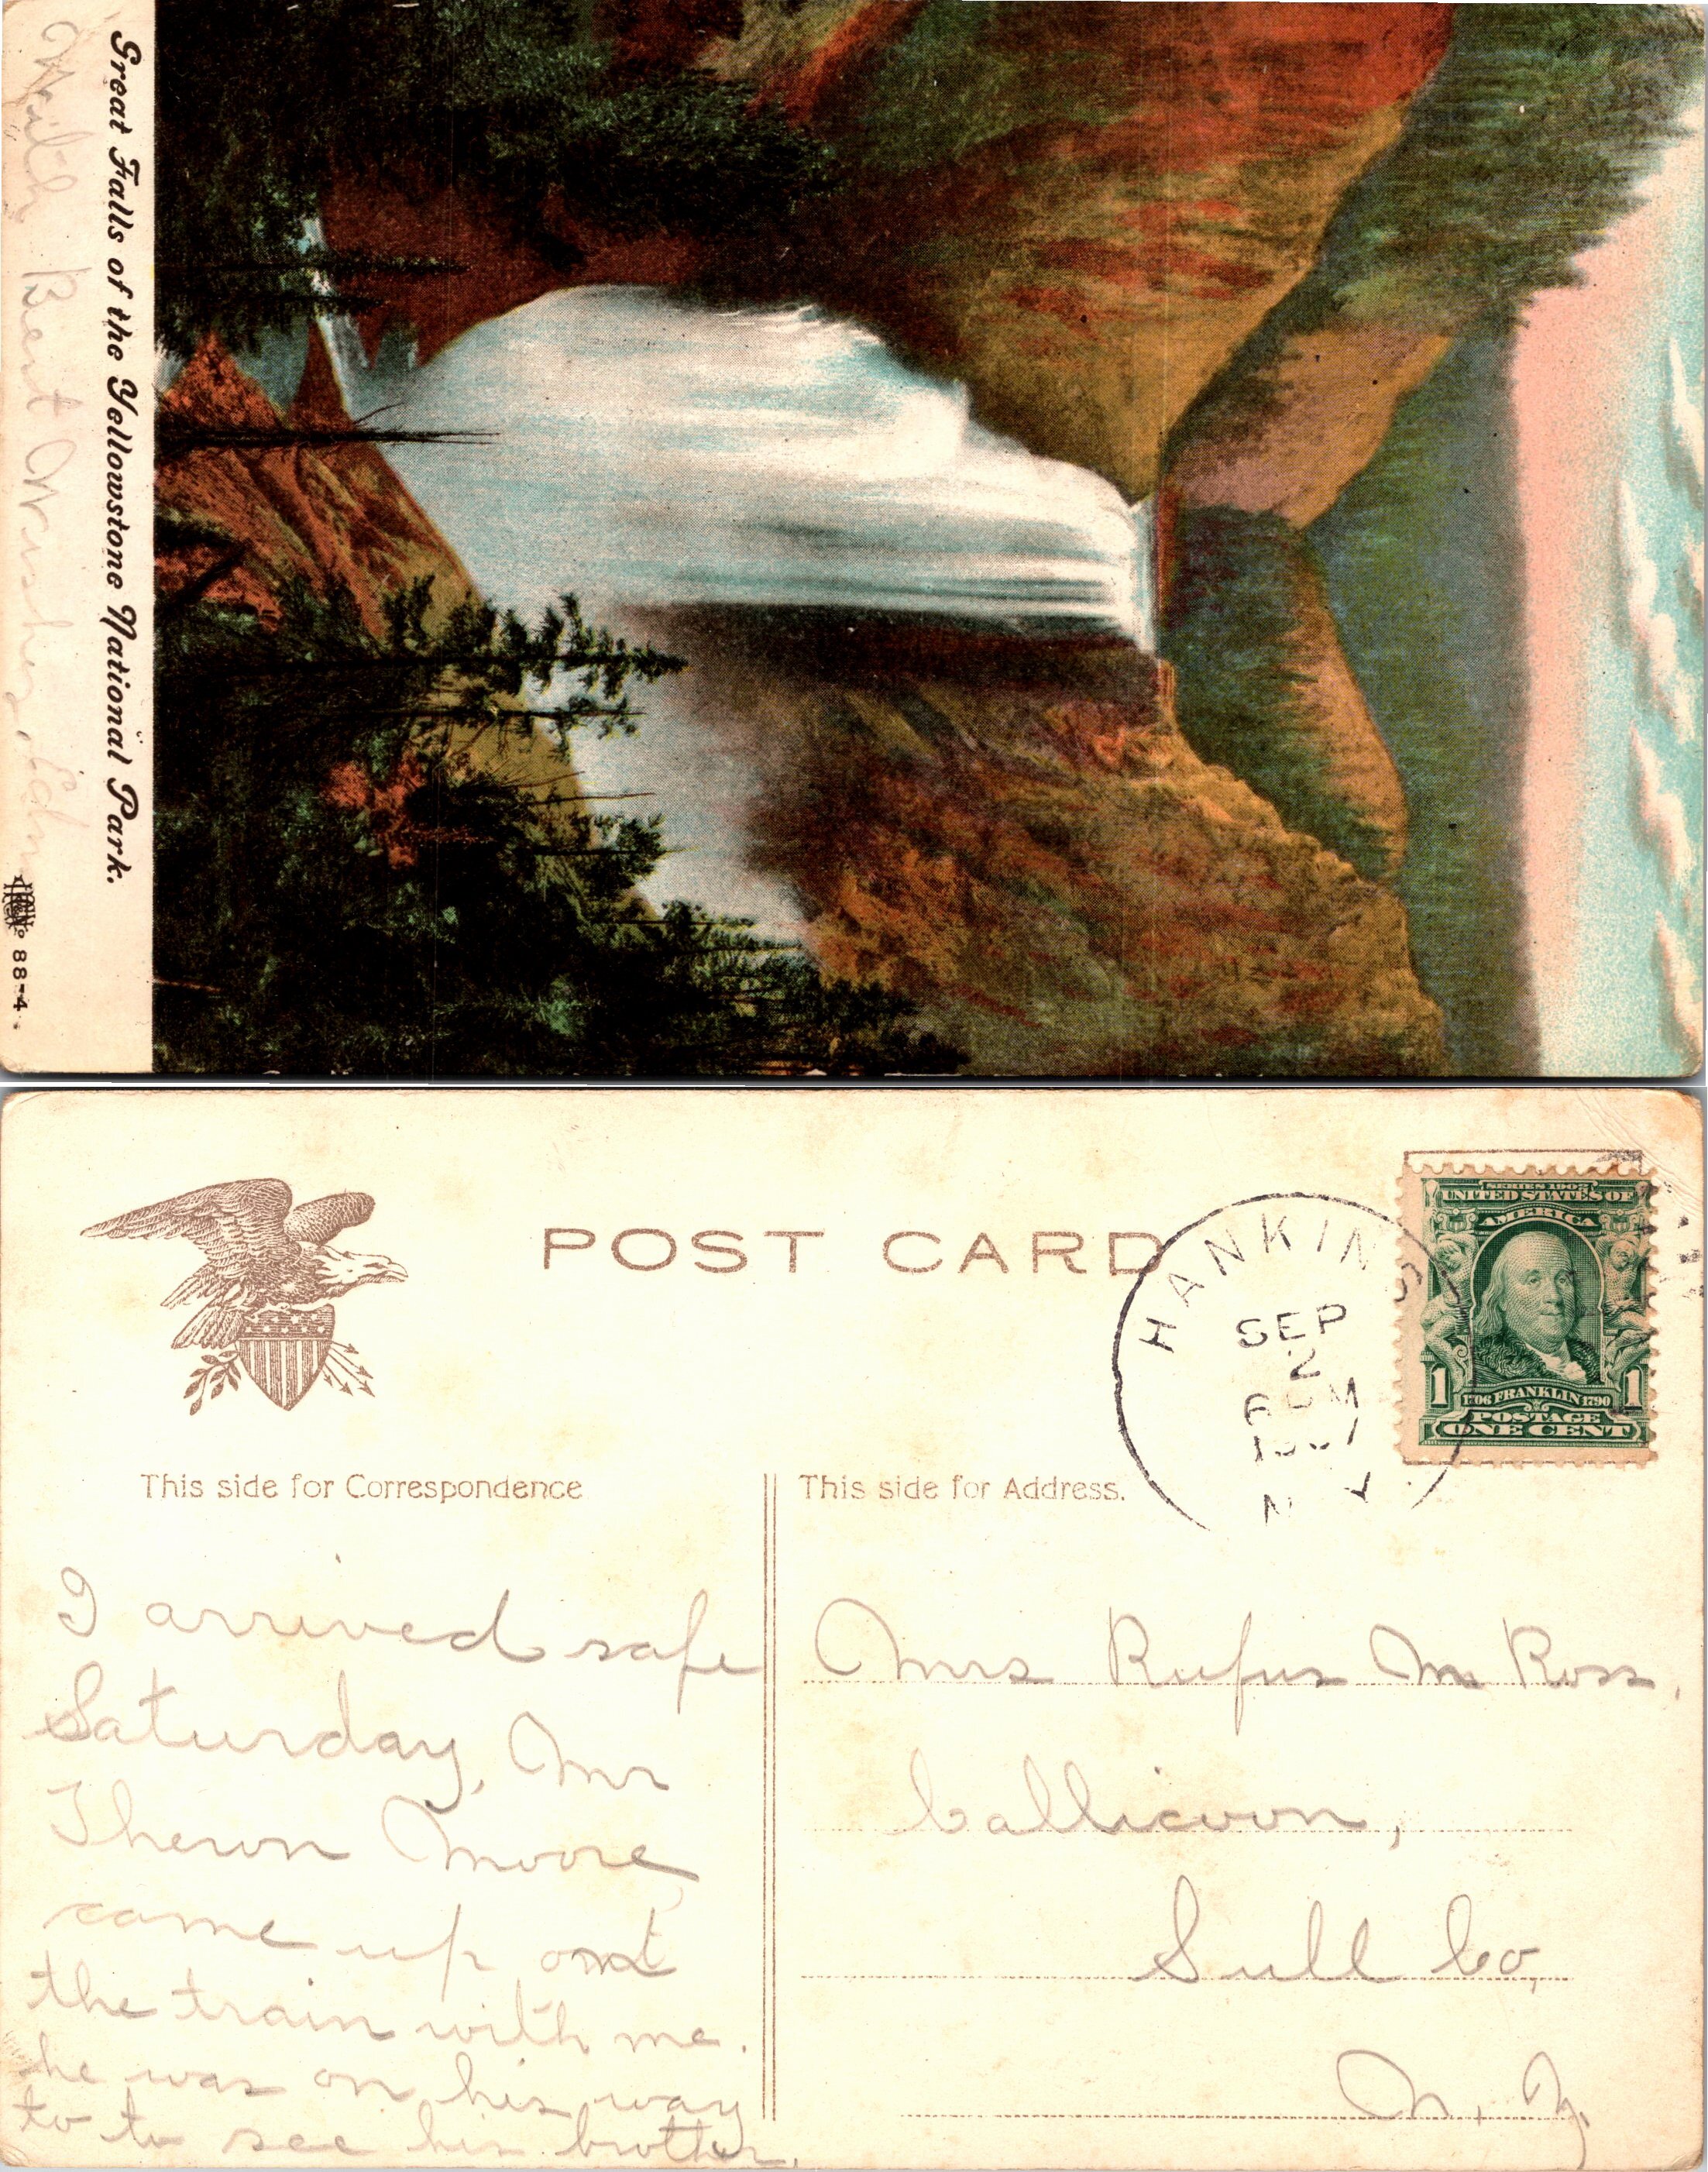 Great Falls of the Yellowstone National Park.
With Best Wishes, Edna
No 88-4.
POST CARD
HANKINS
SEP
2
6 M
1907
N.Y.
SERIES 1902
UNITED STATES OF
AMERICA
1 1
1706 FRANKLIN 1790
POSTAGE
ONE CENT
This side for Correspondence
This side for Address.
I arrived safe
Saturday, Mr
Theron Moore
came up on
the train with me.
he was on his way
to to see his brother.
Mrs Rufus M Ross,
Callicoon,
Sull Co,
N. Y.